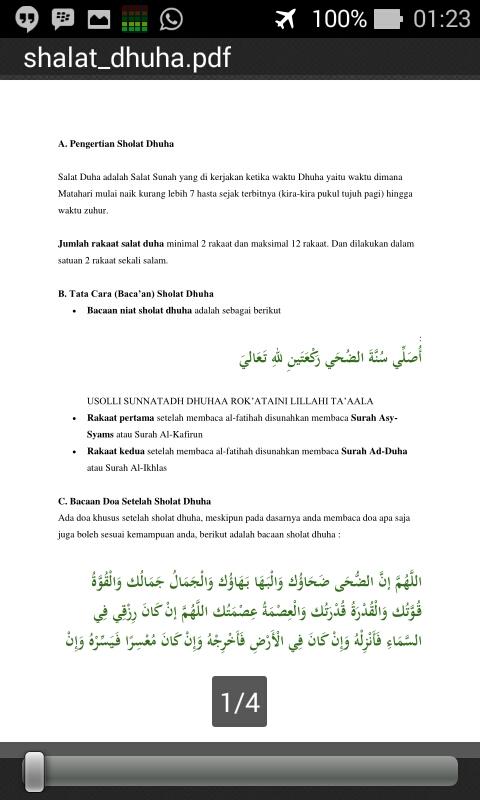 100% 01:23
shalat_dhuha.pdf
A. Pengertian Sholat Dhuha
Salat Duha adalah Salat Sunah yang di kerjakan ketika waktu Dhuha yaitu waktu dimana
Matahari mulai naik kurang lebih 7 hasta sejak terbitnya (kira-kira pukul tujuh pagi) hingga
waktu zuhur.
Jumlah rakaat salat duha minimal 2 rakaat dan maksimal 12 rakaat. Dan dilakukan dalam
satuan 2 rakaat sekali salam.
B. Tata Cara (Baca’an) Sholat Dhuha
• Bacaan niat sholat dhuha adalah sebagai berikut
:
أُصَلِّي سُنَّةَ الضُّحَي رَكْعَتَينِ لِلهِ تَعَالَيَ
USOLLI SUNNATADH DHUHAA ROK’ATAINI LILLAHI TA’AALA
• Rakaat pertama setelah membaca al-fatihah disunahkan membaca Surah Asy-
Syams atau Surah Al-Kafirun
• Rakaat kedua setelah membaca al-fatihah disunahkan membaca Surah Ad-Duha
atau Surah Al-Ikhlas
C. Bacaan Doa Setelah Sholat Dhuha
Ada doa khusus setelah sholat dhuha, meskipun pada dasarnya anda membaca doa apa saja
juga boleh sesuai kemampuan anda, berikut adalah bacaan sholat dhuha :
اللَّهُمَّ إنَّ الضُّحَى ضَحَاؤُك وَالْبَهَا بَهَاؤُك وَالْجَمَالُ جَمَالُك وَالْقُوَّةُ
قُوَّتُك وَالْقُدْرَةُ قُدْرَتُك وَالْعِصْمَةُ عِصْمَتُك اللَّهُمَّ إنْ كَانَ رِزْقِي فِي
السَّمَاءِ فَأَنْزِلْهُ وَإِنْ كَانَ فِي الْأَرْضِ فَأَخْرِجْهُ وَإِنْ كَانَ مُعْسِرًا فَيَسِّرْهُ وَإِنْ
1/4